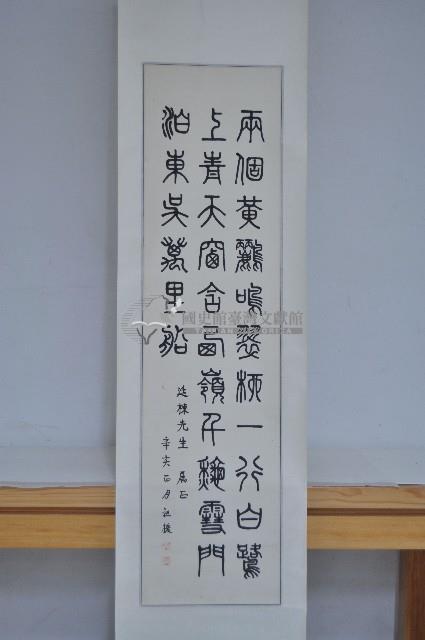 兩個黃鸝鳴翠柳一行白鷺
上青天窗含西嶺千秋雪門
泊東吳萬里船
廷棟先生 屬正
辛亥正月
國史館臺灣文獻館
TAIWAN HISTORICA